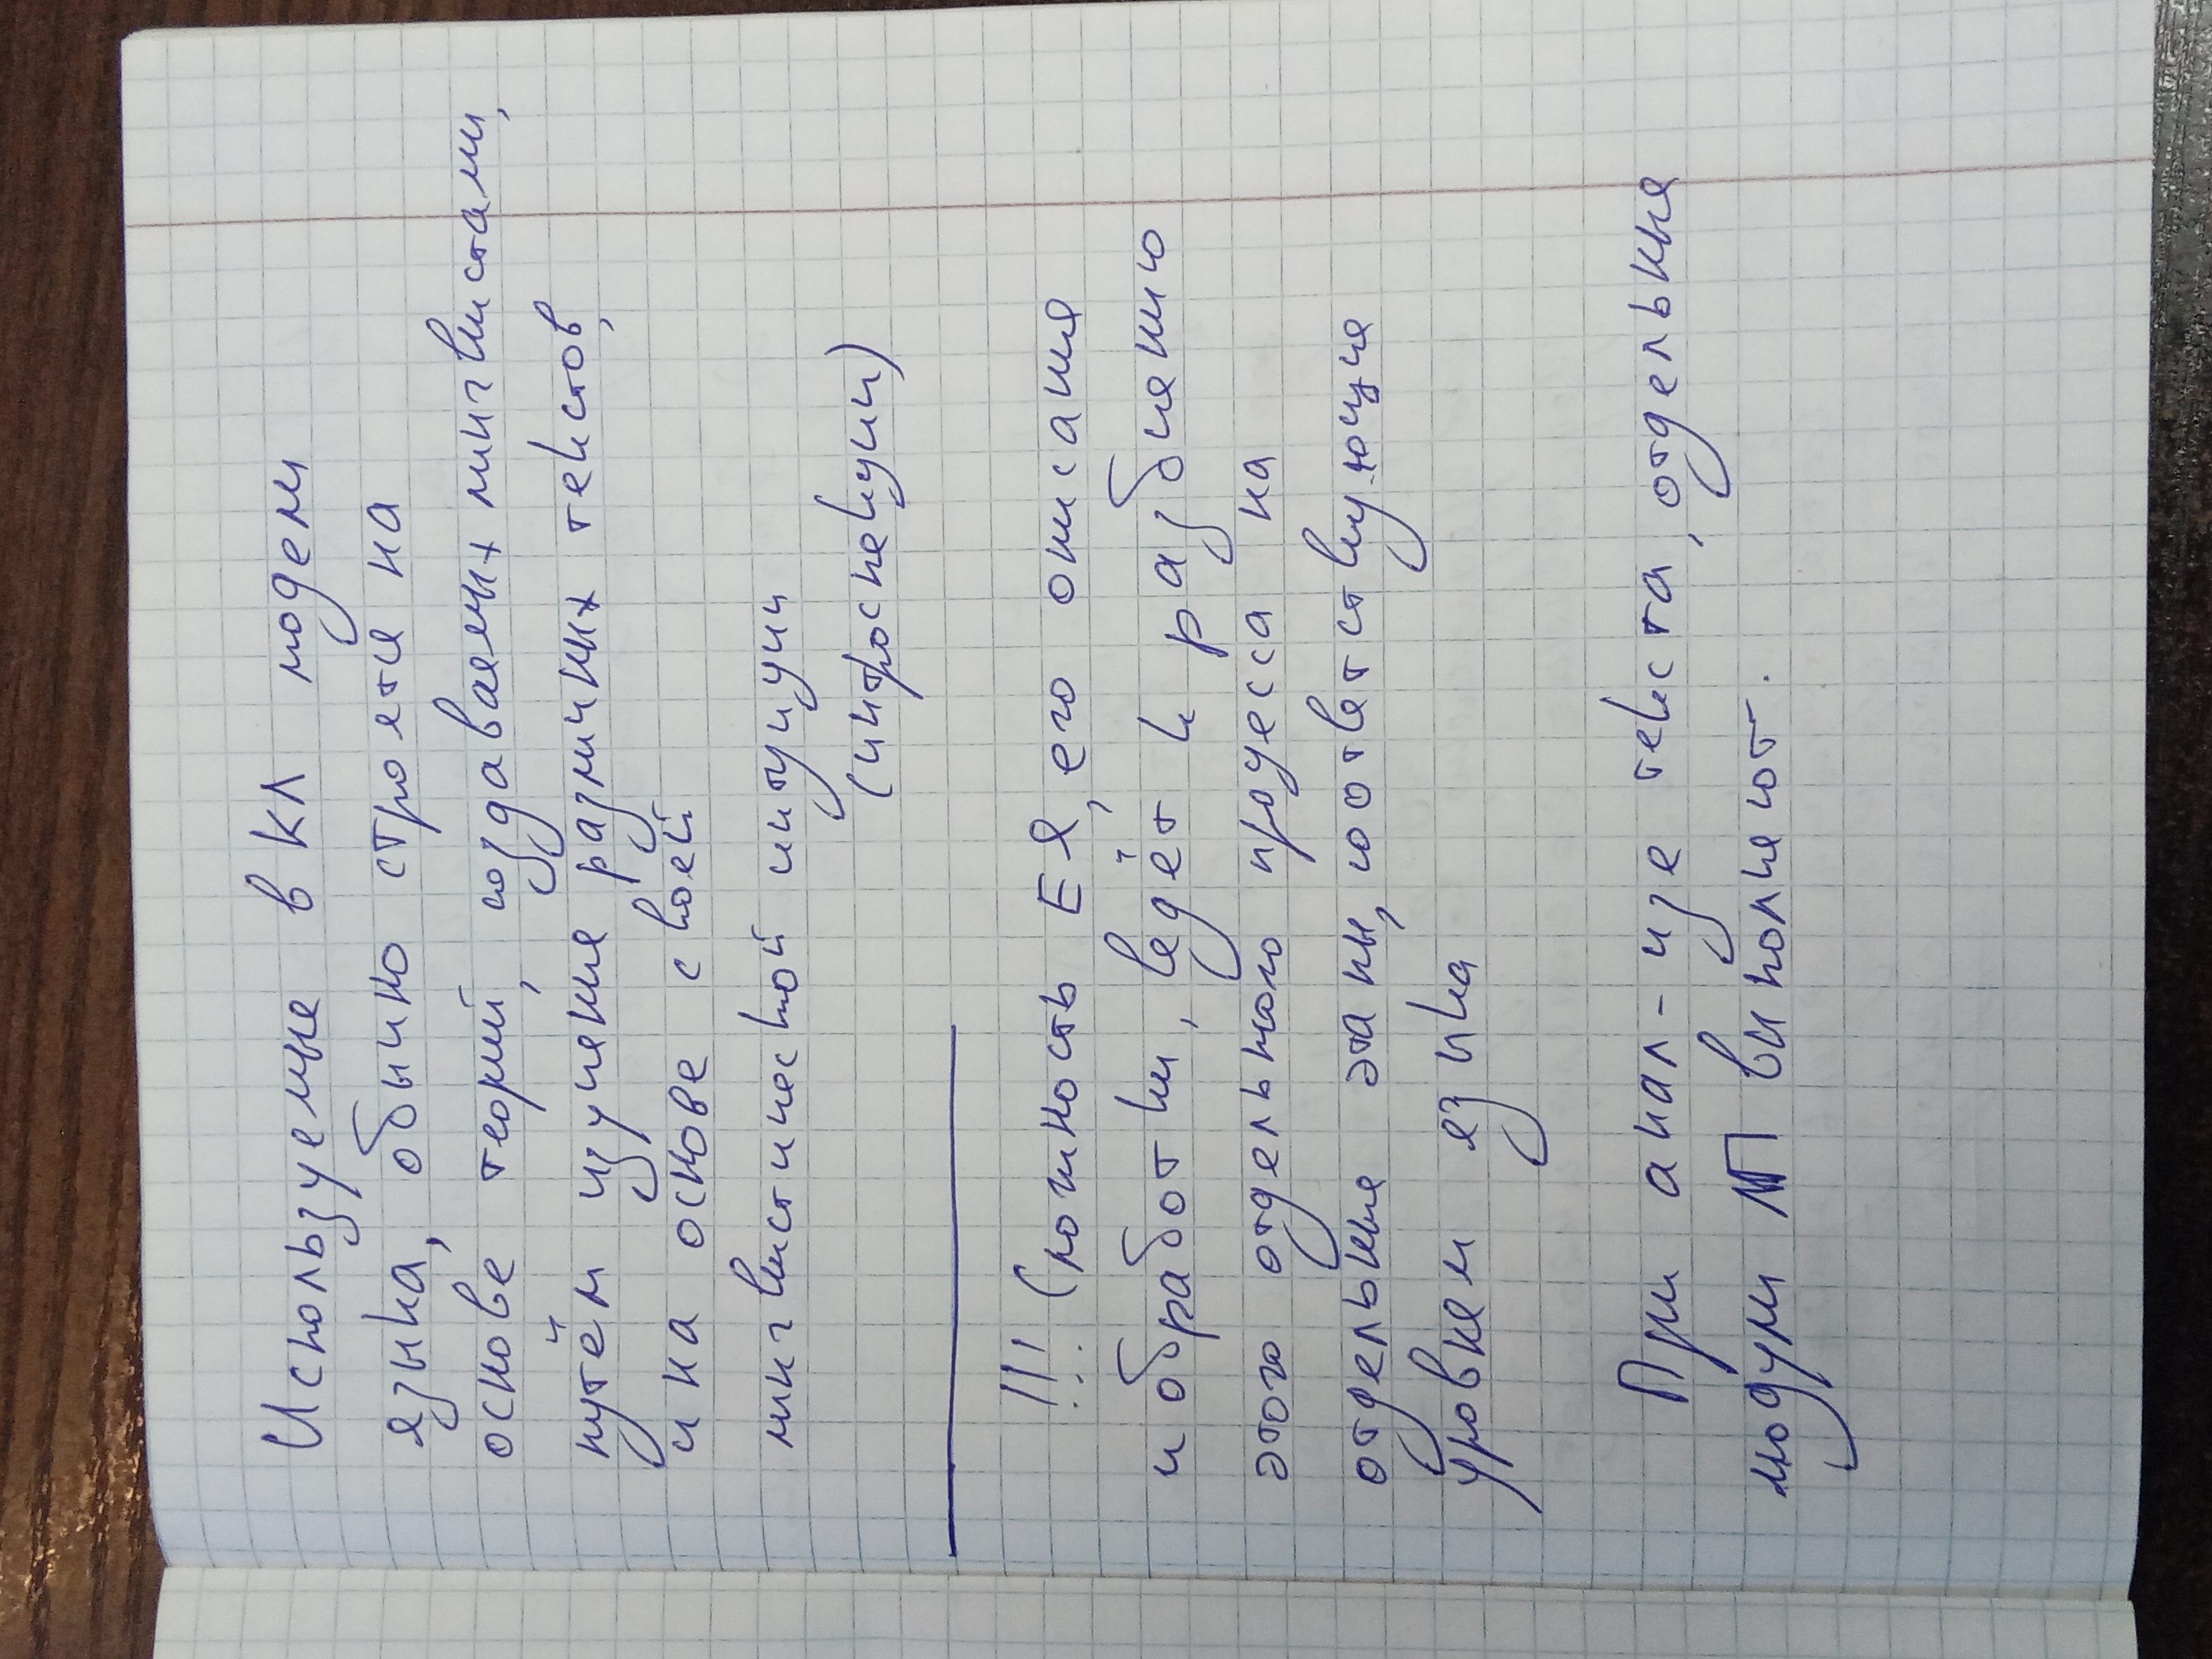 Используемые в КЛ модели
языка, обычно строятся на
основе теорий, создаваемых лингвистами,
путём изучения различных текстов,
и на основе своей
лингвистической интуиции
(интроспекции)
!!! Сложность ЕЯ, его описания
и обработки, ведёт к разбиению
этого отдельного процесса на
отдельные этапы, соответствующие
уровням языка
При анал-изе текста, отдельные
модули ЛП выполняют.